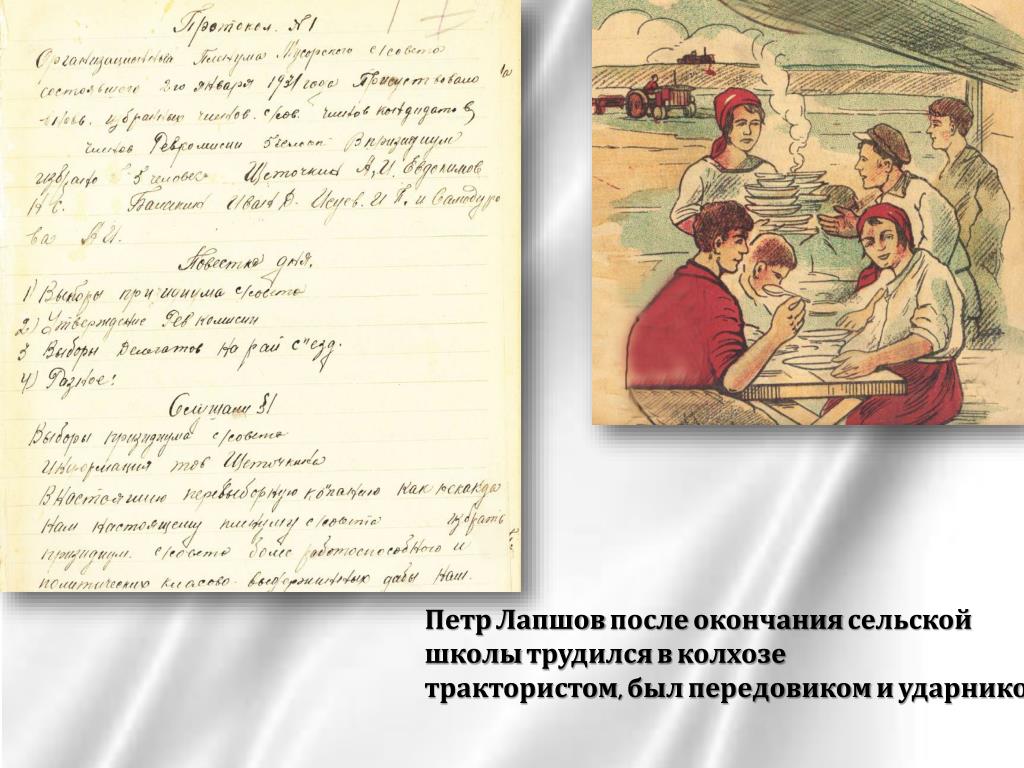 Протокол. №1
Организационный Пленума Мусорского с/совета
состоявшего 2го января 1931 года Присуствовало
вновь. избранных членов. с/сов. членов кондидатов
членов Ревкомисии 5 человек В призидиум
избрано 5 человек Щеточкин А, И. Евдокимов
Н С. Балакин Иван Д. Исуев. И П. и Самодуро
ва А И.
Повестка дня.
1) Выборы призидиума с/совета
2) Утверждение Рев комисии
3 Выборы Делегатов на рай с"езд.
4) Разное:
Слушали §1
Выборы призидиума с/совета
Информация тов Щеточкина
В Настоящию перевыборную компанию как некагда
Нам настоящему пленуму с/совета избрать
призидиум. с/совета более работоспособного и
политических класово. выдержинных дабы Нам.
Петр Лапшов после окончания сельской
школы трудился в колхозе
трактористом, был передовиком и ударнико